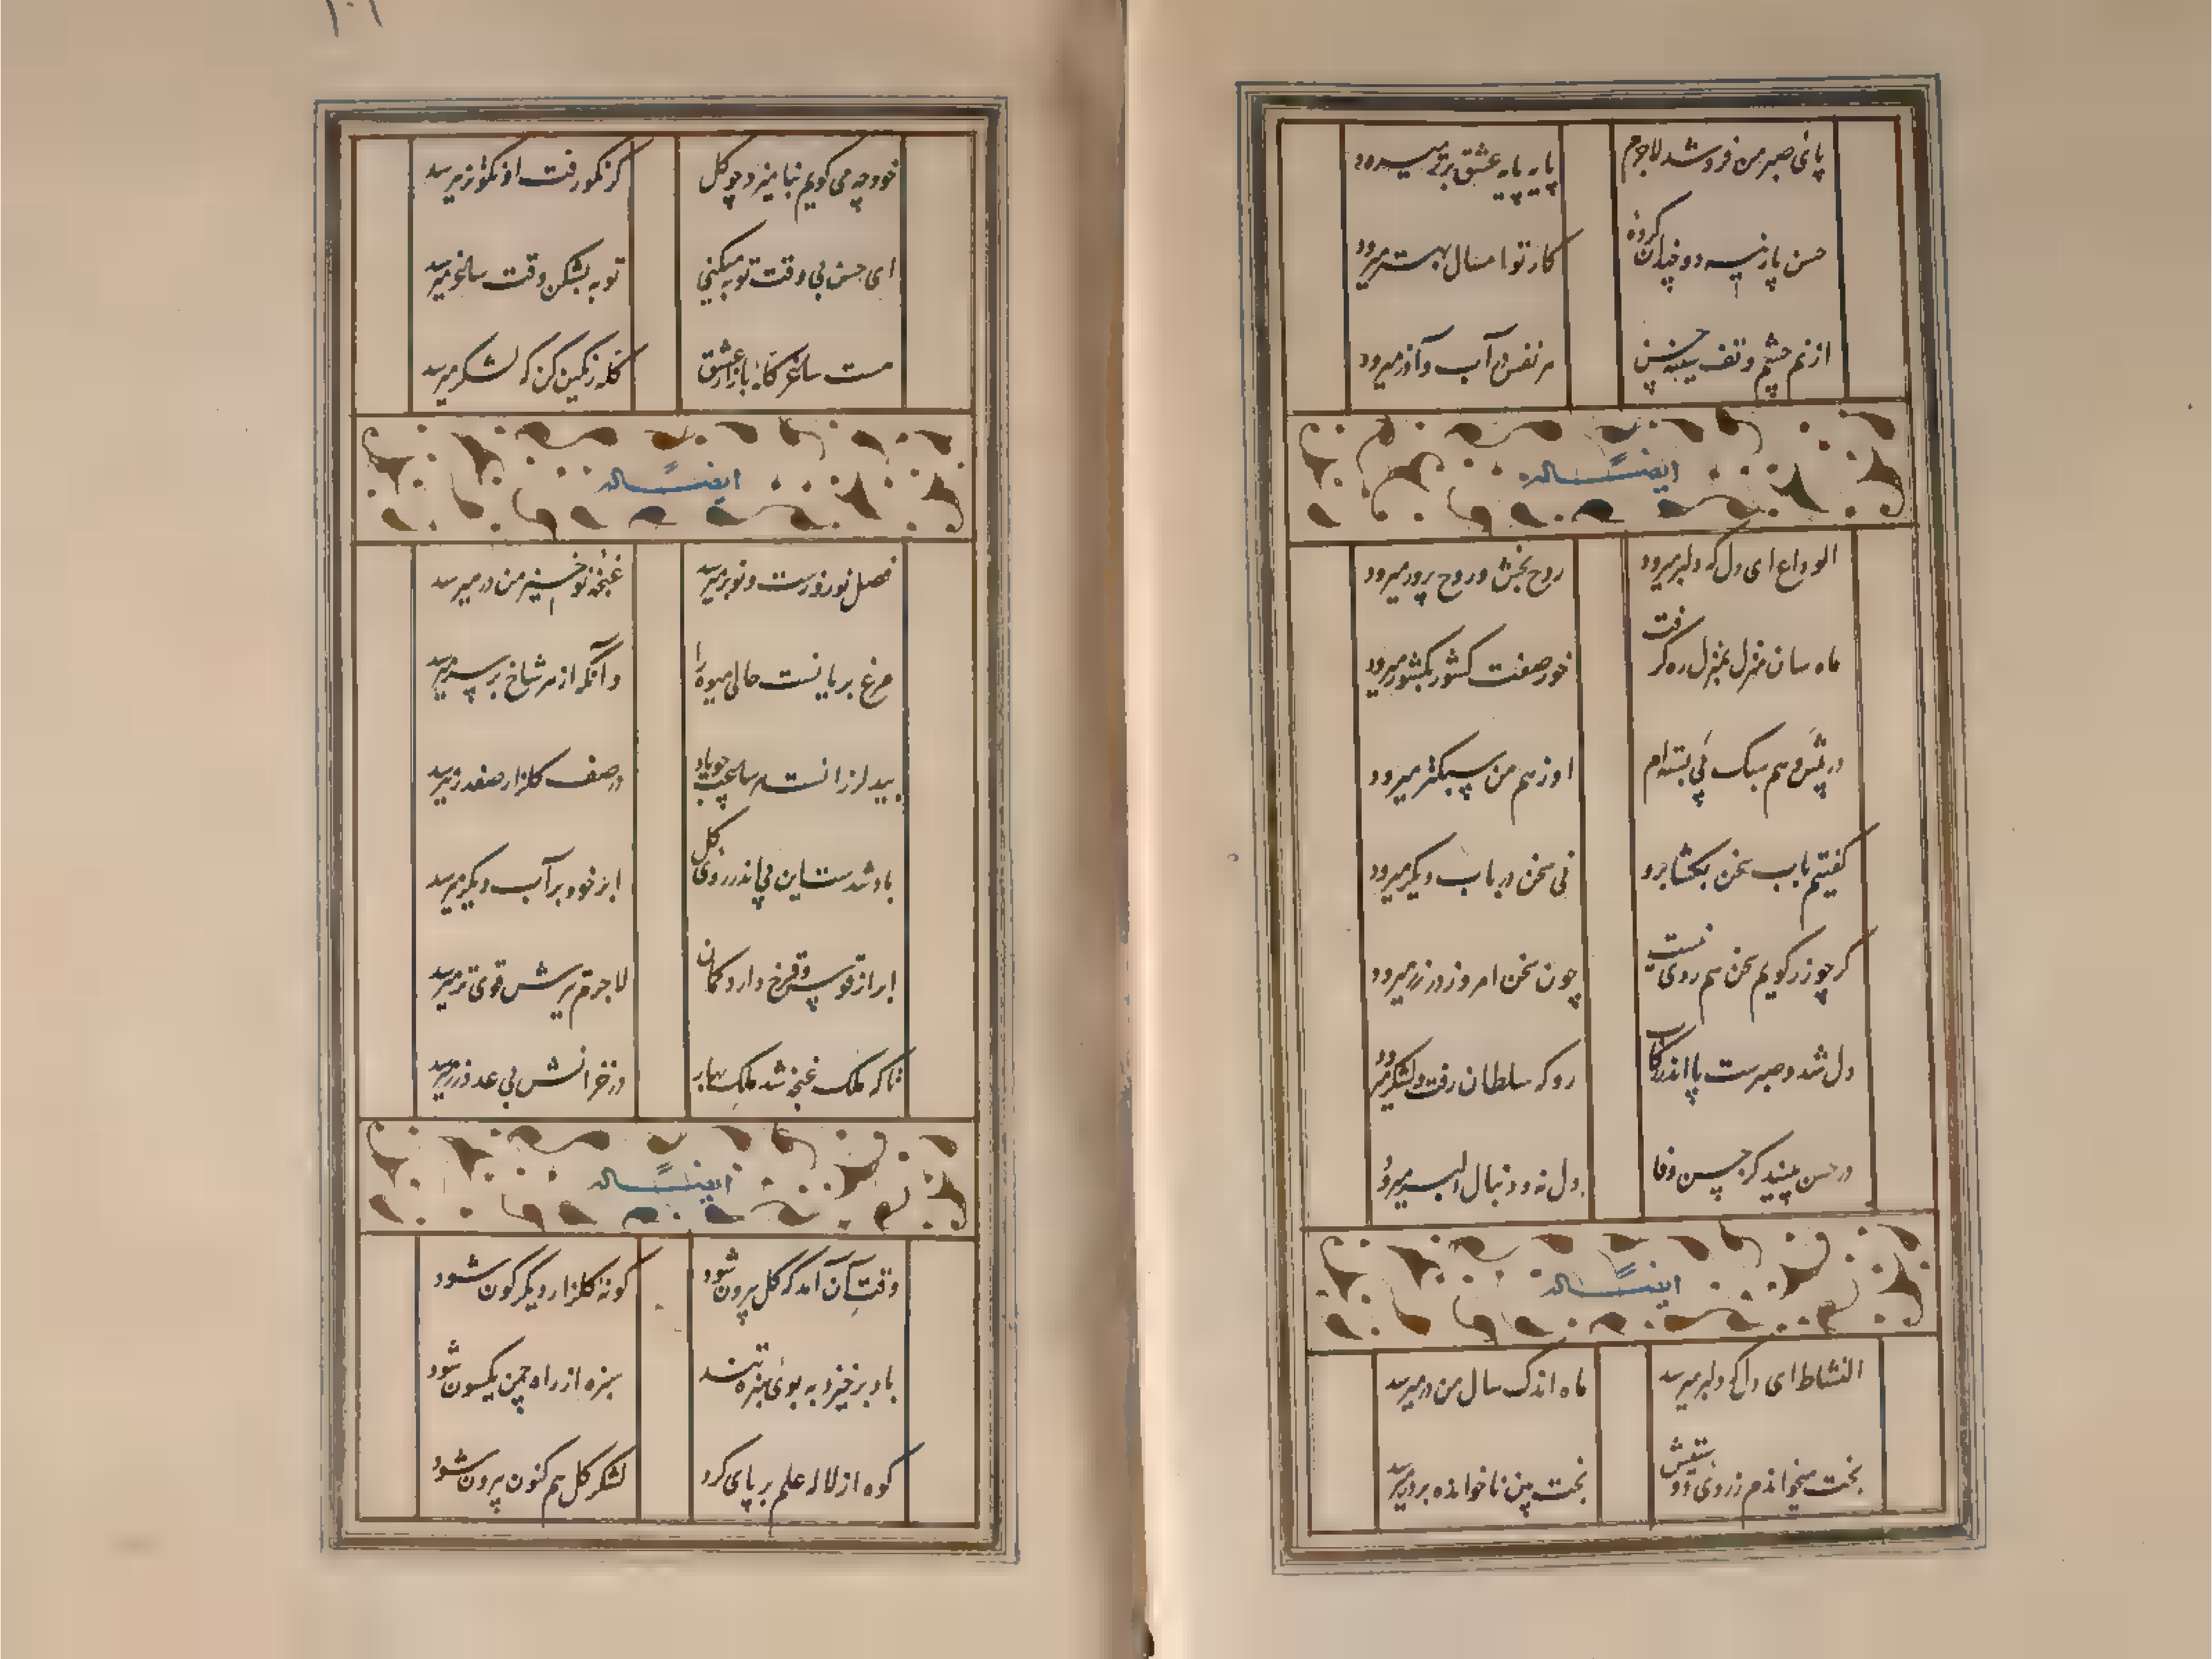 پای صبر من فروشد لاجرم
پایه پایه عشق برتر میرود
حسن پارینه دو چندان کرده
کار تو امسال بهتر میرود
از نم چشم و تف سینه حسن
هر نفس در آب و آذر میرود
ایضاً له
الوداع ای دل که دلبر میرود
روح بخش و روح پرور میرود
ماه سان منزل بمنزل ره گرفت
خور صفت کشور بکشور میرود
در پیش وهم سبک پی بسته‌ام
او ز هم من سبکتر میرود
گفتیم باب سخن بگشا برو
نی سخن در باب دیگر میرود
کر چو زر گویم سخن هم روی نیست
چون سخن امروز در زر میرود
دل شد و صبرست پا اندر رکاب
رو که سلطان رفت و لشکر میرود
در حسن بینید کز حسن وفا
دل نه و دنبال دلبر میرود
ایضاً له
النشاط ای دل که دلبر میرسد
ماه اندک سال من در میرسد
بخت میخواندم ز روی دوستیش
بخت بین ناخوانده بر در میرسد
خود چه می گویم نیامیزد چو گل
کز نکو رفت او نکوتر میرسد
ای حسن بی وقت توبه میکنی
توبه بشکن وقت ساغر میرسد
مست ساغر بازار عشق
کله رنگین کن که لشکر میرسد
ایضاً له
فصل نوروزست و نوبر میرسد
غنچه نوخیز من در میرسد
مرغ بریانست حالی میوه را
وآنکه از هر شاخ بر سر میرسد
بید لرزانست ساعت چو باد
در صف گلزار صفدر میرسد
باد شدست این پی اندر روی گل
ابر خود بر آب دیگر میرسد
ابر از قوس و قزح دارد کمان
لاجرم تیرش قوی تر میرسد
تا که ملک غنچه شد ملک بهار
در خزانش بی عدد زر میرسد
ایضاً له
وقت آن آمد که گل بیرون شود
گونه گلزار دیگرگون شود
باد برخیزد به بوی سبزه تند
سبزه از راه چمن یکسون شود
کوه از لاله علم بر پای کرد
لشکر گل هم کنون بیرون شود